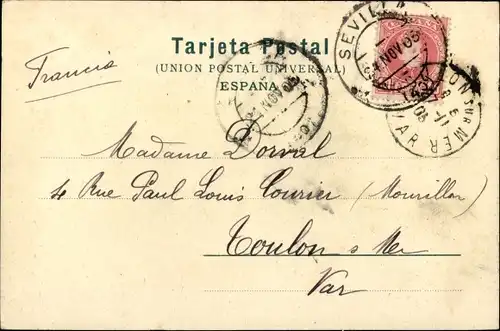 Tarjeta Postal
(UNION POSTAL UNIVERSAL)
ESPAÑA
Francia
SEVILLA
NOV 03
Madame Dorval
4 Rue Paul Louis Courier (Mourillon)
Toulon s Mer
Var
SUR MER
VAR